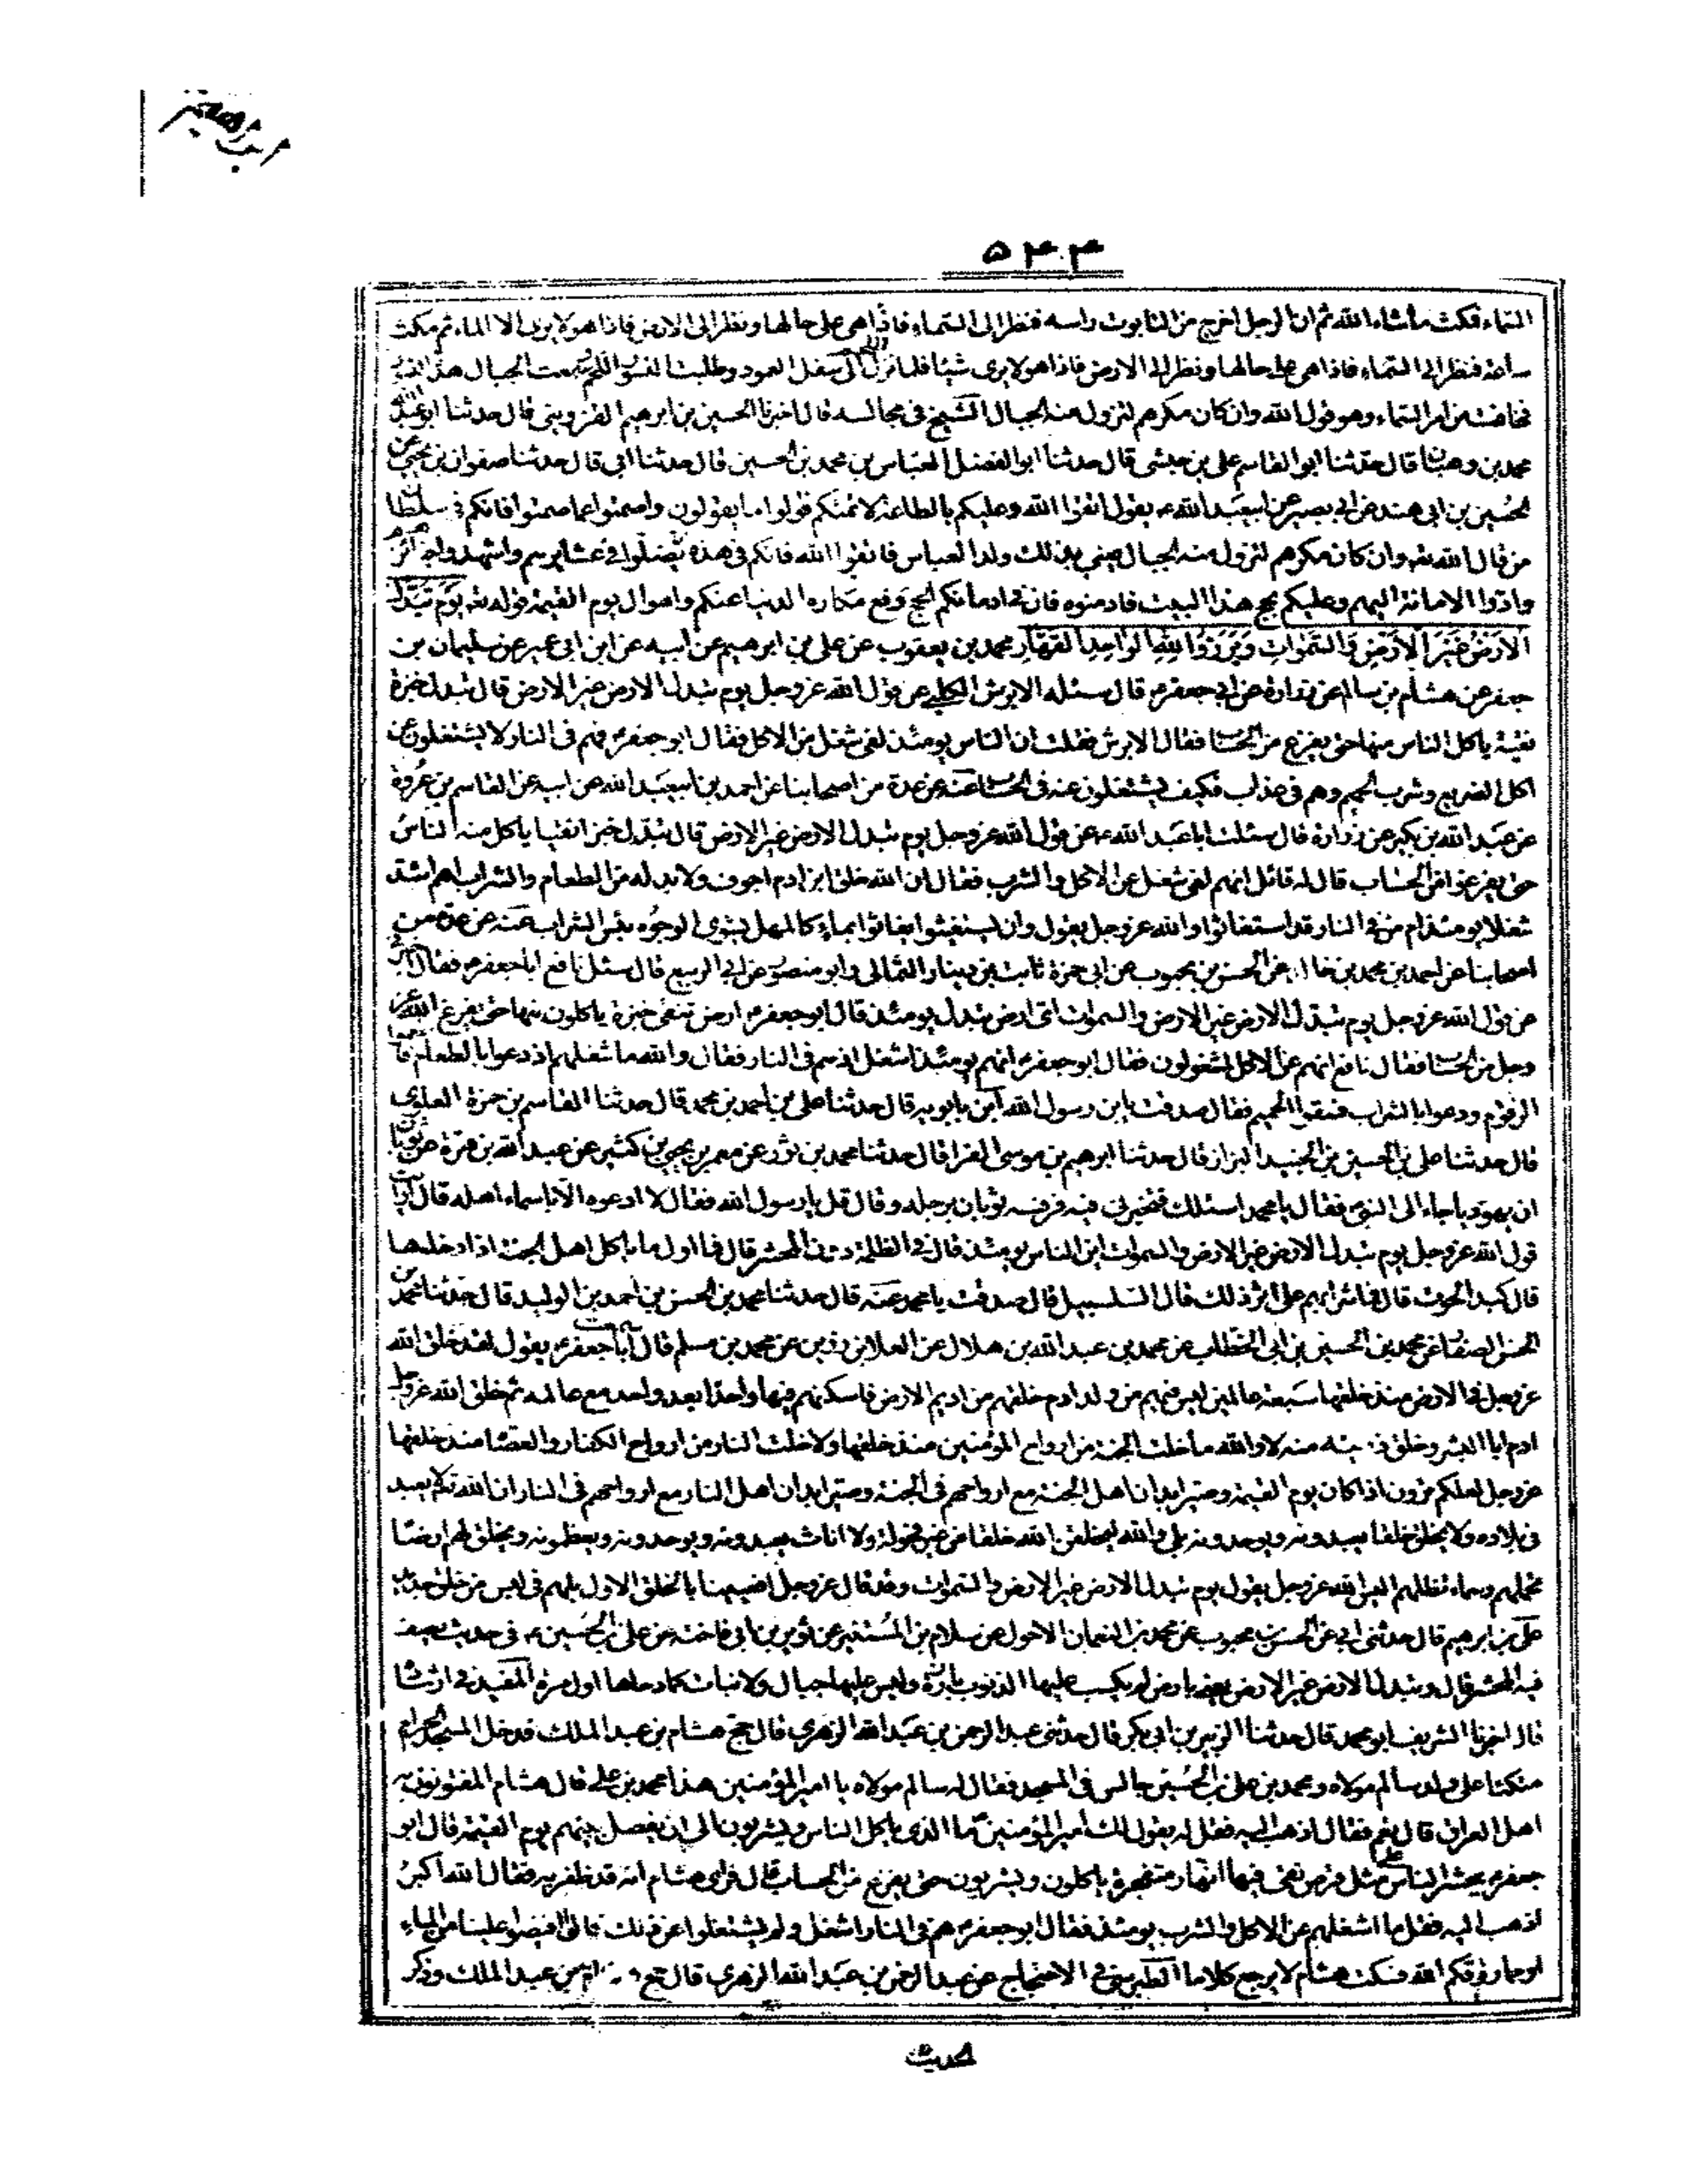 ۵۴۴
السماء فمكث ما شاء الله ثم ان الرجل اخرج من التابوت راسه فنظر الى السماء فاذا هى على حالها ونظر الى الارض فاذا هو لا يرى الا الماء ثم مكث
ساعة فنظر الى السماء فاذا هى على حالها ونظر الى الارض فاذا هو لا يرى شيئا فلما نزل الى سفل العود وطلبت النسور اللحم سمعت الجبال هدة
فخافت من امر السماء وهو قول الله وان كان مكرهم لتزول منه الجبال الشيخ فى مجالسه قال اخبرنا الحسين بن ابرهيم القزوينى قال حدثنا ابو عبد الله
محمد بن وهبان قال حدثنا ابو القاسم على بن حبشى قال حدثنا ابو الفضل العباس بن محمد بن الحسين قال حدثنا ابى قال حدثنا صفوان بن يحيى عن
الحسين بن ابى هند عن ابى بصير عن ابيعبد الله ع يقول اتقوا الله وعليكم بالطاعة لائمتكم قولوا ما يقولون واصمتوا عما صمتوا فانكم فى سلطان
من قال الله تع وان كان مكرهم لتزول منه الجبال يعنى بذلك ولد العباس فاتقوا الله فانكم فى هدنة صلوا فى عشايرهم واشهدوا جنائزهم
وادوا الامانة اليهم وعليكم بحج هذا البيت فادمنوه فان فى ادمانكم الحج دفع مكاره الدنيا عنكم واهوال يوم القيمة قوله تع يَوْمَ تُبَدَّلُ
الْاَرْضُ غَيْرَ الْاَرْضِ وَالسَّمٰوَاتُ وَبَرَزُوا لِلّٰهِ الْوَاحِدِ الْقَهَّارِ محمد بن يعقوب عن على بن ابرهيم عن ابيه عن ابن ابى عمير عن سليمان بن
جعفر عن هشام بن سالم عن زرارة عن ابى جعفر ع قال سئله الابرش الكلبى عن قول الله عز وجل يوم تبدل الارض غير الارض قال تبدل خبزة
نقية ياكل الناس منها حتى يفرغ من الحساب فقال الابرش فقلت ان الناس يومئذ لفى شغل من الاكل فقال ابو جعفر ع فهم فى النار لا يشتغلون عن
اكل الضريع وشرب الحميم وهم فى عذاب فكيف يشتغلون عنه فى الحساب عنه عن عدة من اصحابنا عن احمد بن ابيعبد الله عن ابيه عن القاسم بن عروة
عن عبد الله بن بكير عن زرارة قال سئلت ابا عبد الله ع عن قول الله عز وجل يوم تبدل الارض غير الارض قال تبدل خبزا نقيا ياكل منه الناس
حتى يفرغوا من الحساب قال له قائل انهم لفى شغل عن الاكل والشرب فقال ان الله خلق ابن ادم اجوف ولا بد له من الطعام والشراب اهم اشد
شغلا يومئذ ام من فى النار قد استغاثوا والله عز وجل يقول وان يستغيثوا يغاثوا بماء كالمهل يشوى الوجوه بئس الشراب عنه عن عدة من
اصحابنا عن احمد بن محمد بن خالد عن الحسن بن محبوب عن ابى حمزة ثابت بن دينار الثمالى وابو منصور عن ابى الربيع قال سئل نافع ابا جعفر ع فقال اخبرنى
عن قول الله عز وجل يوم تبدل الارض غير الارض والسموات اى ارض تبدل يومئذ قال ابو جعفر ع ارض تبقى خبزة ياكلون منها حتى يفرغ الله عز
وجل من الحساب فقال نافع انهم عن الاكل لمشغولون فقال ابو جعفر ع انهم يومئذ اشغل اذ هم فى النار فقال والله ما شغلهم اذ دعوا بالطعام فاطعموا
الزقوم ودعوا بالشراب فسقوا الحميم فقال صدقت يابن رسول الله ابن بابويه قال حدثنا على بن احمد بن محمد قال حدثنا القاسم بن حمزة العلوى
قال حدثنا على بن الحسين بن الجنيد البزاز قال حدثنا ابرهيم بن موسى الفرا قال حدثنا محمد بن ثور عن معمر بن يحيى بن كثير عن عبد الله بن مرة عن ثوبان
ان يهوديا جاء الى النبى فقال يا محمد اسئلك فتخبرنى فيه فرفسه ثوبان برجله وقال قل يا رسول الله فقال لا ادعوه الا باسماء اهله قال ارايت
قول الله عز وجل يوم تبدل الارض غير الارض والسموات اين الناس يومئذ قال فى الظلمة دون المحشر قال فما اول ما ياكل اهل الجنة اذا دخلوها
قال كبد الحوت قال فما شرابهم على اثر ذلك قال السلسبيل قال صدقت يا محمد عنه قال حدثنا محمد بن الحسن بن احمد بن الوليد قال حدثنا محمد بن
الحسن الصفار عن محمد بن الحسين بن ابى الخطاب عن محمد بن عبد الله بن هلال عن العلا بن رزين عن محمد بن مسلم قال سمعت ابا جعفر ع يقول لقد خلق الله
عز وجل فى الارض منذ خلقها سبعة عالمين ليس فيهم من ولد ادم خلقهم من اديم الارض فاسكنهم فيها واحدا بعد واحد مع عالمه ثم خلق الله عز وجل
ادم ابا البشر وخلق ذريته منه لا والله ما خلت الجنة من ارواح المؤمنين منذ خلقها ولا خلت النار من ارواح الكفار والعصاة منذ خلقها
عز وجل لعلكم ترون اذا كان يوم القيمة وصير ابدان اهل الجنة مع ارواحهم فى الجنة وصير ابدان اهل النار مع ارواحهم فى النار ان الله تع لا يعبد
فى بلاده ولا يخلق خلقا يعبدونه ويوحدونه بلى والله ليخلقن الله خلقا من غير فحولة ولا اناث يعبدونه ويوحدونه ويعظمونه ويخلق لهم ارضا
تحملهم وسماء تظلهم اليس الله عز وجل يقول يوم تبدل الارض غير الارض والسموات وقد قال عز وجل افعيينا بالخلق الاول بل هم فى لبس من خلق جديد
على بن ابرهيم قال حدثنى ابى عن الحسن بن محبوب عن محمد بن النعمان الاحول عن سلام بن المستنير عن ثوير بن ابى فاخته عن على بن الحسين ع فى حديث يصف
فيه المحشر قال وتبدل الارض غير الارض يعنى بارض لم يكسب عليها الذنوب بارزة وليس عليها جبال ولا نبات كما دحاها اول مرة المفيد فى ارشاده
قال اخبرنا الشريف ابو محمد قال حدثنا الزبير بن ابى بكر قال حدثنى عبد الرحمن بن عبد الله الزهرى قال حج هشام بن عبد الملك فدخل المسجد الحرام
متكئا على ولد سالم مولاه ومحمد بن على بن الحسين جالس فى المسجد فقال له سالم مولاه يا امير المؤمنين هذا محمد بن على قال هشام المفتون به
اهل العراق قال نعم فقال اذهب اليه فقل له يقول لك امير المؤمنين ما الذى ياكل الناس ويشربون الى ان يفصل بينهم يوم القيمة قال ابو
جعفر ع يحشر الناس على مثل قرص نقى فيها انهار متفجرة ياكلون ويشربون حتى يفرغ من الحساب قال فراى هشام انه قد ظفر به فقال الله اكبر
اذهب اليه فقل ما اشغلهم عن الاكل والشرب يومئذ فقال ابو جعفر ع هم فى النار اشغل ولم يشتغلوا عن ذلك قالوا افيضوا علينا من الماء
او مما رزقكم الله فسكت هشام لا يرجع كلاما الطبرسى فى الاحتجاج عن عبد الرحمن بن عبد الله الزهرى قال حج هشام بن عبد الملك وذكر
الحديث